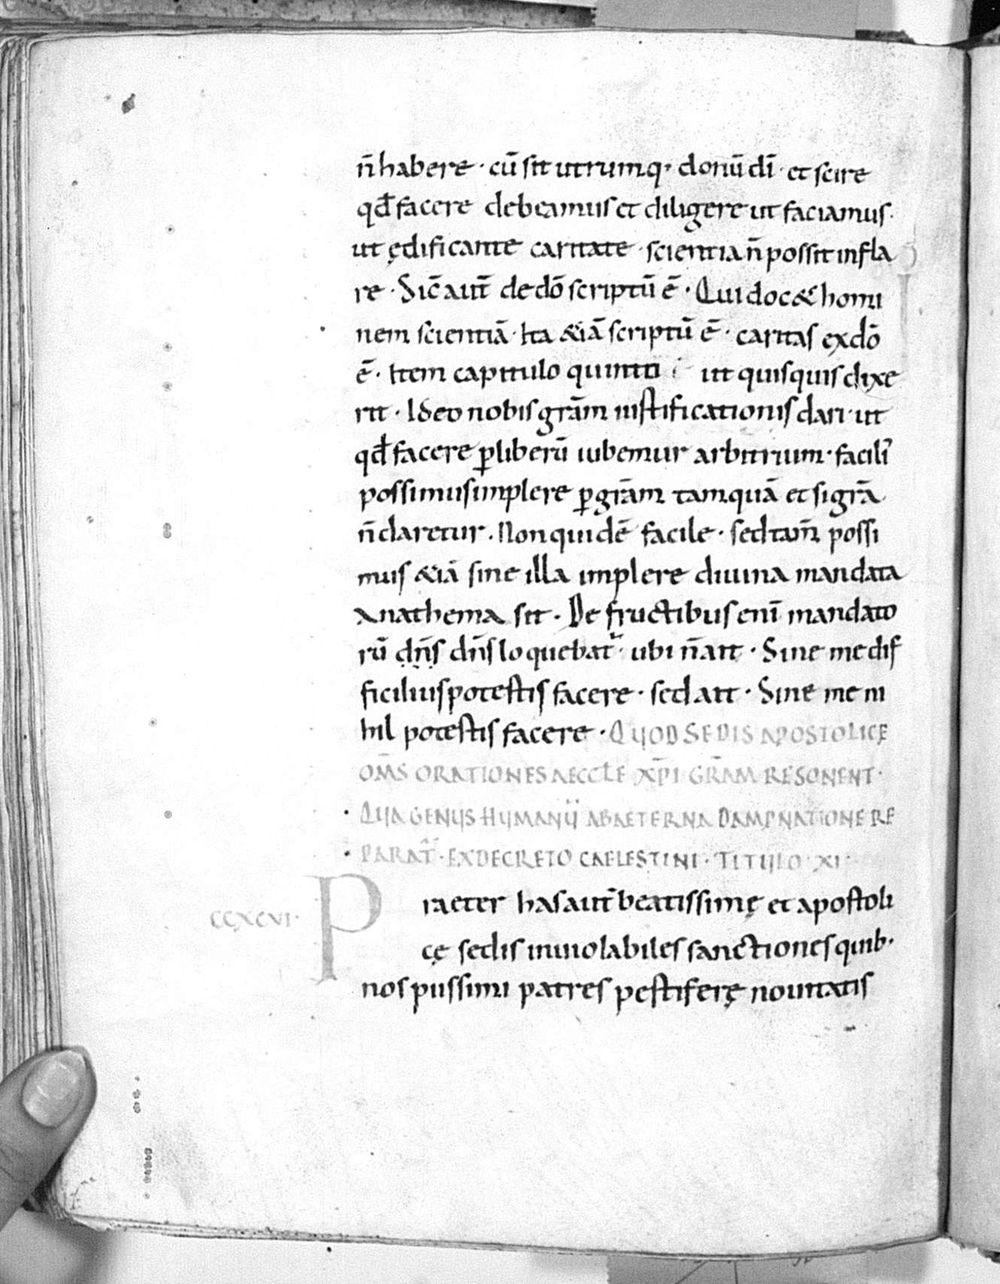 n̄ habere · cū sit utrumq· donū dī · et scire
qđ facere debeamus et diligere ut faciamus·
ut ędificante caritate · scientia n̄ possit infla
re · Sic̄ aut̄ de dō scriptū ē · Qui doc& homi
nem scientiā · Ita &iā scriptū ē · caritas ex dō
ē · Item capitulo quinto ut quisquis dixe
rit · Ideo nobis grām iustificationis dari · ut
qđ facere ꝑ liberū iubemur arbitrium · facili
possimus implere ꝑ grām tamquā et si grā
n̄ daretur . Non quidē facile · sed tam̄ possi
mus &iā sine illa implere diuina mandata
anathema sit · De fructibus enī mandato
rū dn̄s dn̄s loquebat̄ · ubi n̄ ait · Sine me dif
ficilius potestis facere · sed ait · Sine me ni
hil potestis facere · QUOD SEDIS APOSTOLICĘ
OM̄S ORATIONES AECCLE XP̄I GRĀM RESONENT ·
QUA GENUS HUMANŪ AB AETERNA DAMPNATIONE RE
PARAT̄ · EX DECRETO CAELESTINI · TITULO XI ·
CCXCVI · Praeter has aut̄ beatissimę et apostoli
cę sedis inuiolabiles sanctiones quib·
nos piissimi patres pestiferę nouitatis